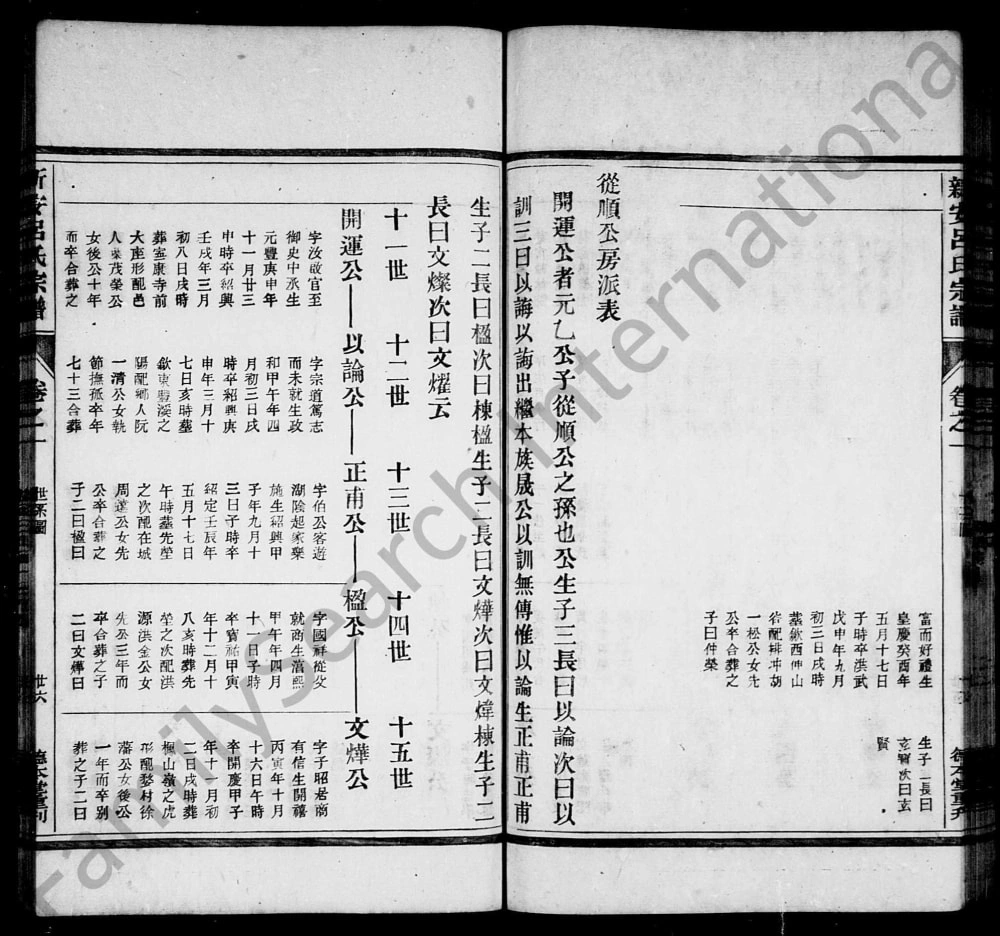 新安呂氏宗譜
卷之一
富而好禮生
皇慶癸酉年
五月十七日
子時卒洪武
戊申年九月
初三日戌時
葬歙西仲山
一松公女先
公卒合葬之
子曰仲榮
生子二長曰
玄
次曰玄
賢
德本堂重刊
從順公房派表
開運公者元乙公子從順公之孫也公生子三長曰以論次曰以
訓三曰以誨以誨出繼本族晟公以訓無傳惟以論生正甫正甫
生子二長曰楹次曰棟楹生子二長曰文燁次曰文煒棟生子二
長曰文燦次曰文燿云
十一世 十二世 十三世 十四世 十五世
開運公——以論公——正甫公——楹公——文燁公
字汝敬官至
御史中丞生
元豐庚申年
十一月廿三
申時卒紹興
壬戌年三月
初八日戌時
葬寧康寺前
大座形配邑
人葉茂榮公
女後公十年
而卒合葬之
字宗道篤志
而未就生政
和甲午年四
月初三日戌
時卒紹興庚
申年三月十
七日亥時葬
歙東
之
陽配鄉人阮
一清公女執
節撫孤卒年
七十三合葬
字伯公客遊
湖陰起家棄
施生紹興甲
子年九月十
三日子時卒
紹定壬辰年
五月十七日
午時葬先塋
之次配在城
周蓬公女先
公卒合葬之
子二曰楹曰
字國祥從父
就商生淳熙
甲午年四月
十一日子時
卒寶祐甲寅
年十二月十
八亥時葬先
塋之次配洪
源洪金公女
先公三年而
卒合葬之子
二曰文燁曰
字子昭君商
有信生開禧
丙寅年十月
十六日午時
卒開慶甲子
年十一月初
二日戌時葬
楓山嶺之虎
形配婺村徐
藩公女後公
一年而卒別
葬之子二曰
新安呂氏宗譜
卷之一
世系圖
廿六
德本堂重刊
FamilySearch International